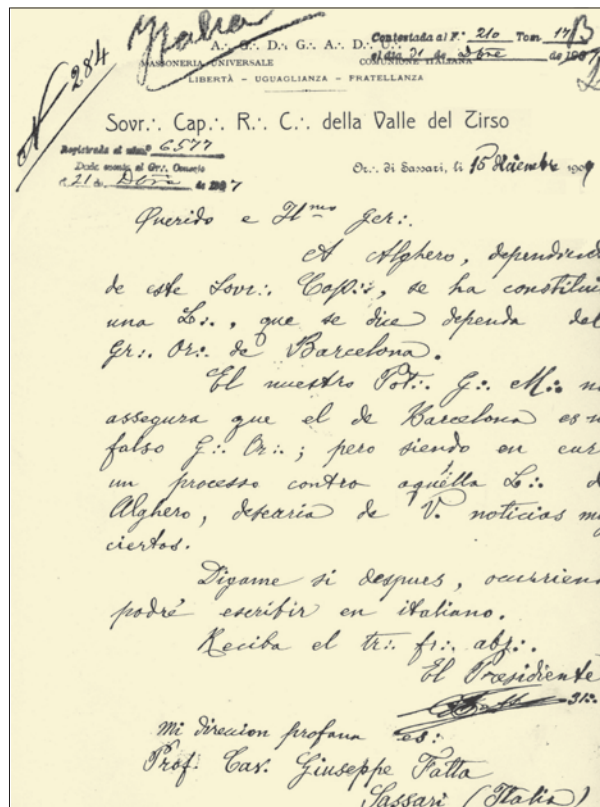 Italia
Nº 284
A∴ G∴ D∴ G∴ A∴ D∴ U∴
MASSONERIA UNIVERSALE COMUNIONE ITALIANA
LIBERTÀ – UGUAGLIANZA – FRATELLANZA
Contestada al F.º 210 Tom 17
el dia 31 de Dbre de 190
Sovr∴ Cap∴ R∴ C∴ della Valle del Tirso
Registrada al núm.º 6577
Dada cuenta al Gr∴ Consejo
el 21 de Dbre de 1907
Or∴ di Sassari, li 15 diciembre 190
Querido e H.mo Ger∴
A Alghero, dependiend
de este Sovr∴ Cap∴, se ha constitui
una L∴, que se dice dependa del
Gr∴ Or∴ de Barcelona.
El nuestro Pot∴ G∴ M∴ n
assegura que el de Barcelona es u
falso G∴ Or∴; pero siendo en curs
un processo contro aquélla L∴ d
Alghero, desearia de V. noticias mu
ciertas.
Digame si despues, ocurrien
podré escribir en italiano.
Reciba el tr∴ fr∴ abz∴
El Presidiente
31∴
mi direcion profana es:
Prof. Cav. Giuseppe Fatta
Sassari (Italia)